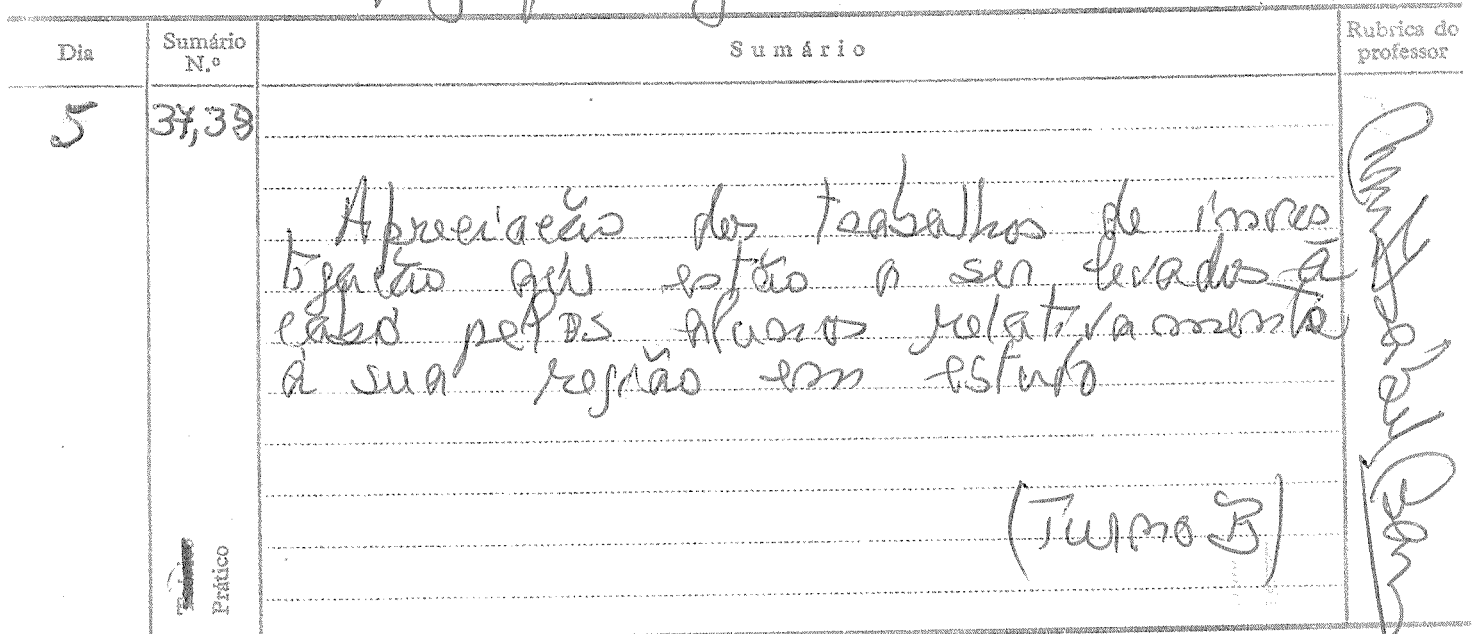 Dia
Sumário N.º
Sumário
Rubrica do professor
5
37,38
Apreciação dos trabalhos de inves
tigação que estão a ser levados à
cabo pelos alunos relativamente
à sua região em estudo
(Turno B)
Prático